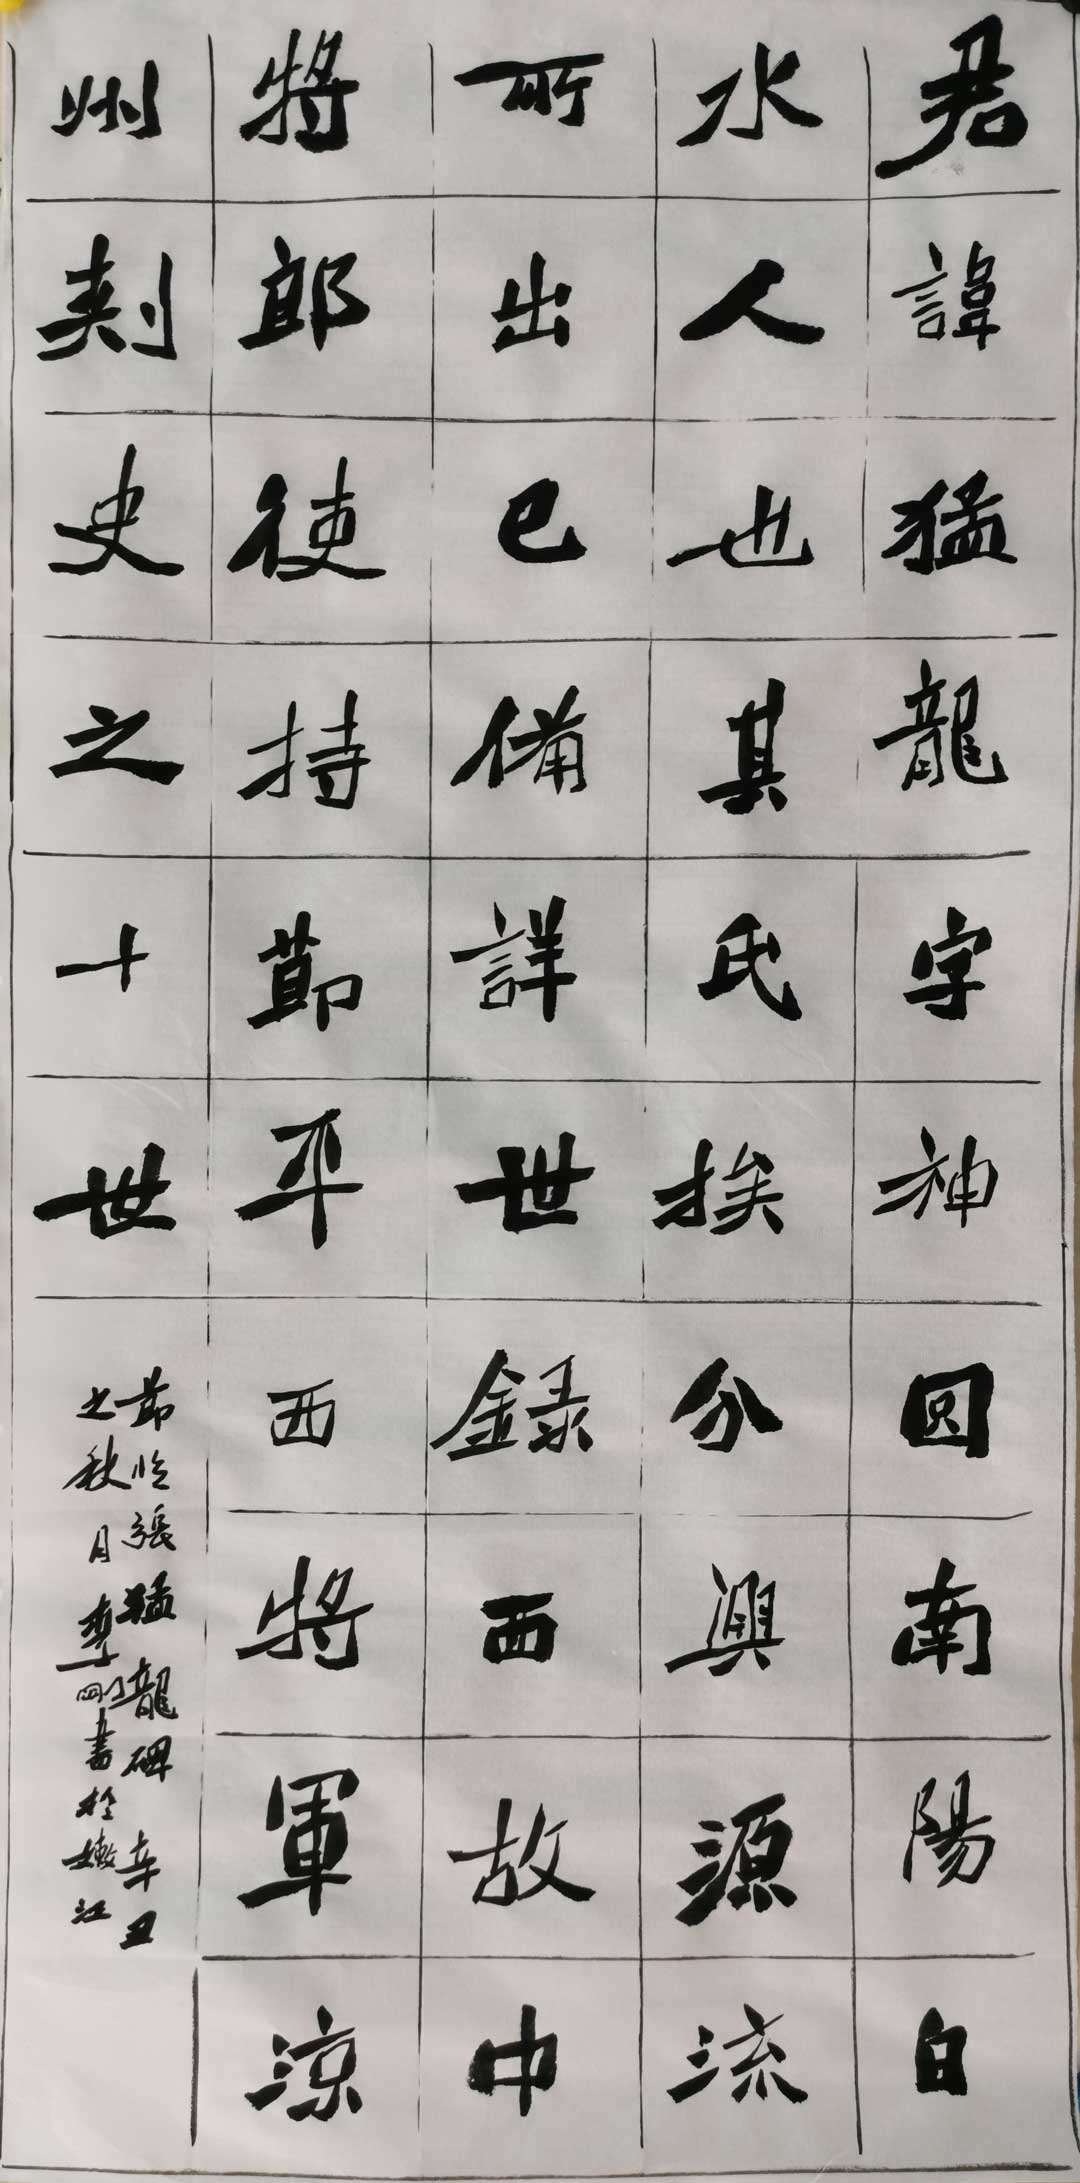 君諱猛龍字神囧南陽白
水人也其氏族分興源流
所出已備詳世錄西故中
將郎使持節平西將軍涼
州刺史之十世
節臨張猛龍碑辛丑
之秋月李剛書於嫩江